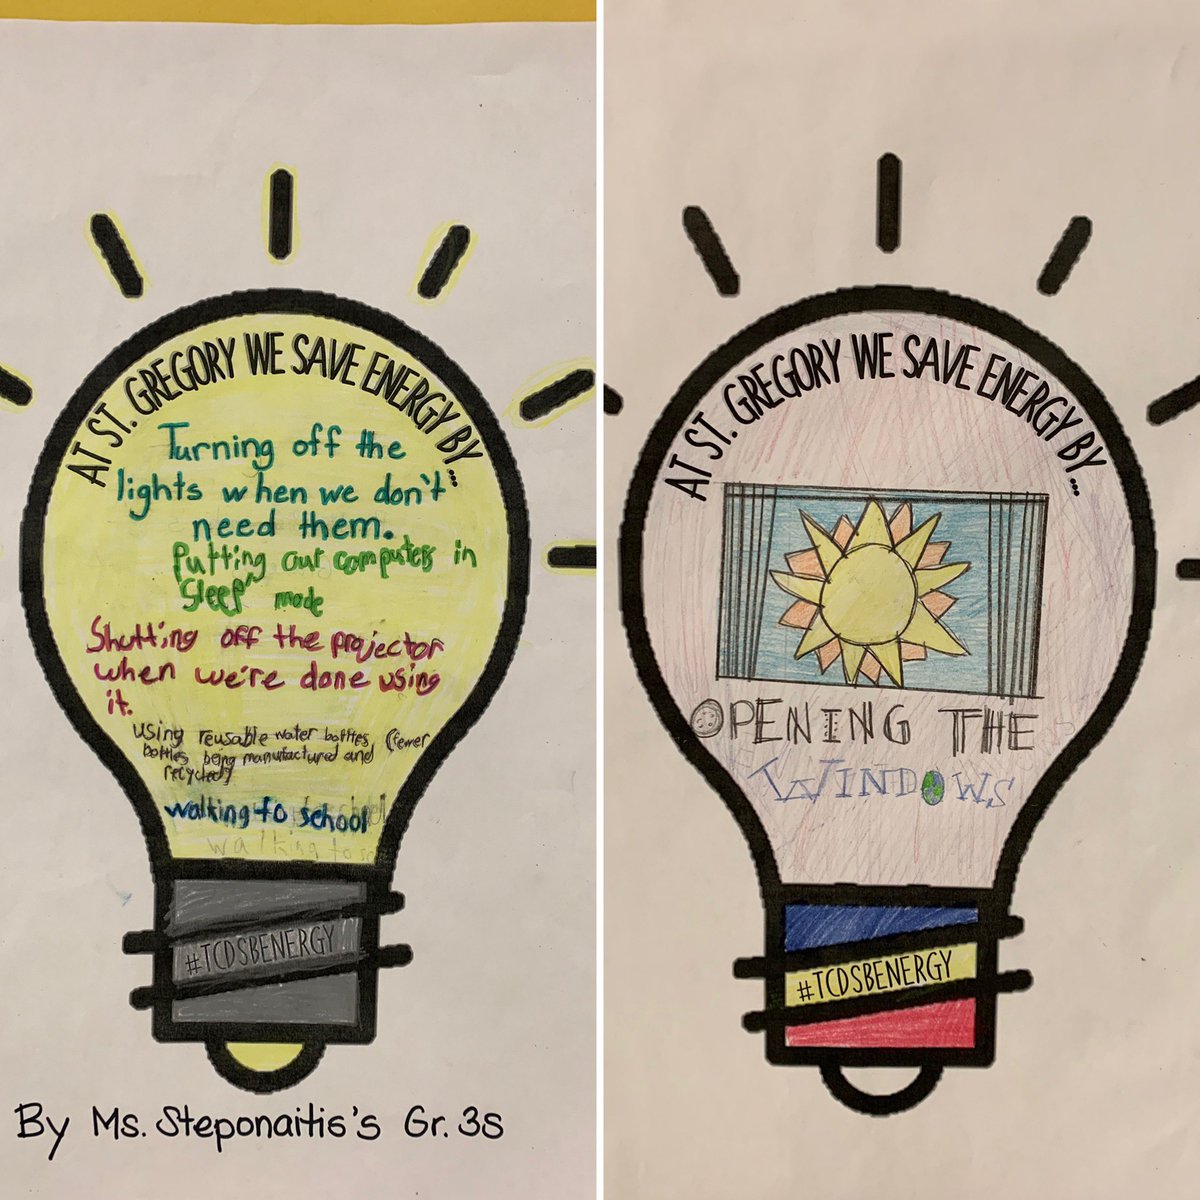 AT ST. GREGORY WE SAVE ENERGY BY...
Turning off the
lights when we don't
need them.
Putting our computers in
"Sleep" mode
Shutting off the projector
when we're done using
it.
using reusable water bottles (fewer
bottles being manufactured and
recycled)
walking to school
walking to
#TCDSBENERGY
By Ms. Steponaitis's Gr. 3s
AT ST. GREGORY WE SAVE ENERGY BY...
OPENING THE
WINDOWS
#TCDSBENERGY